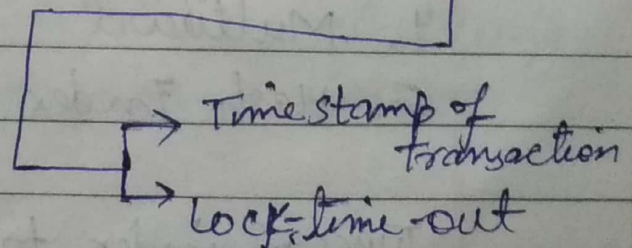 Timestamp of
transaction
Lock-time-out